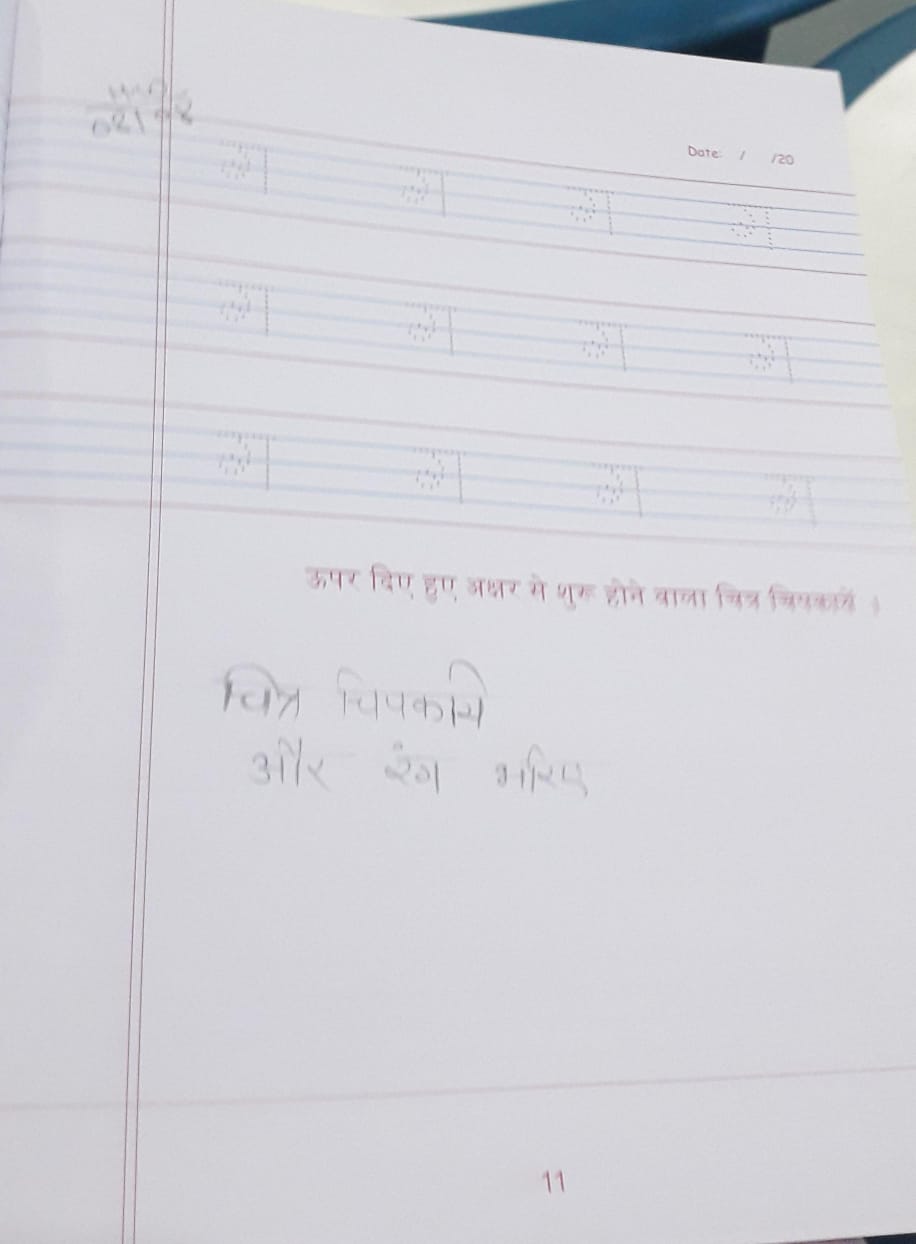 Date: / /20
अ अ अ अ
अ अ अ अ
अ अ अ अ
ऊपर दिए हुए अक्षर से शुरू होने वाला चित्र चिपकायें ।
चित्र चिपकाये
और रंग भरिए
11